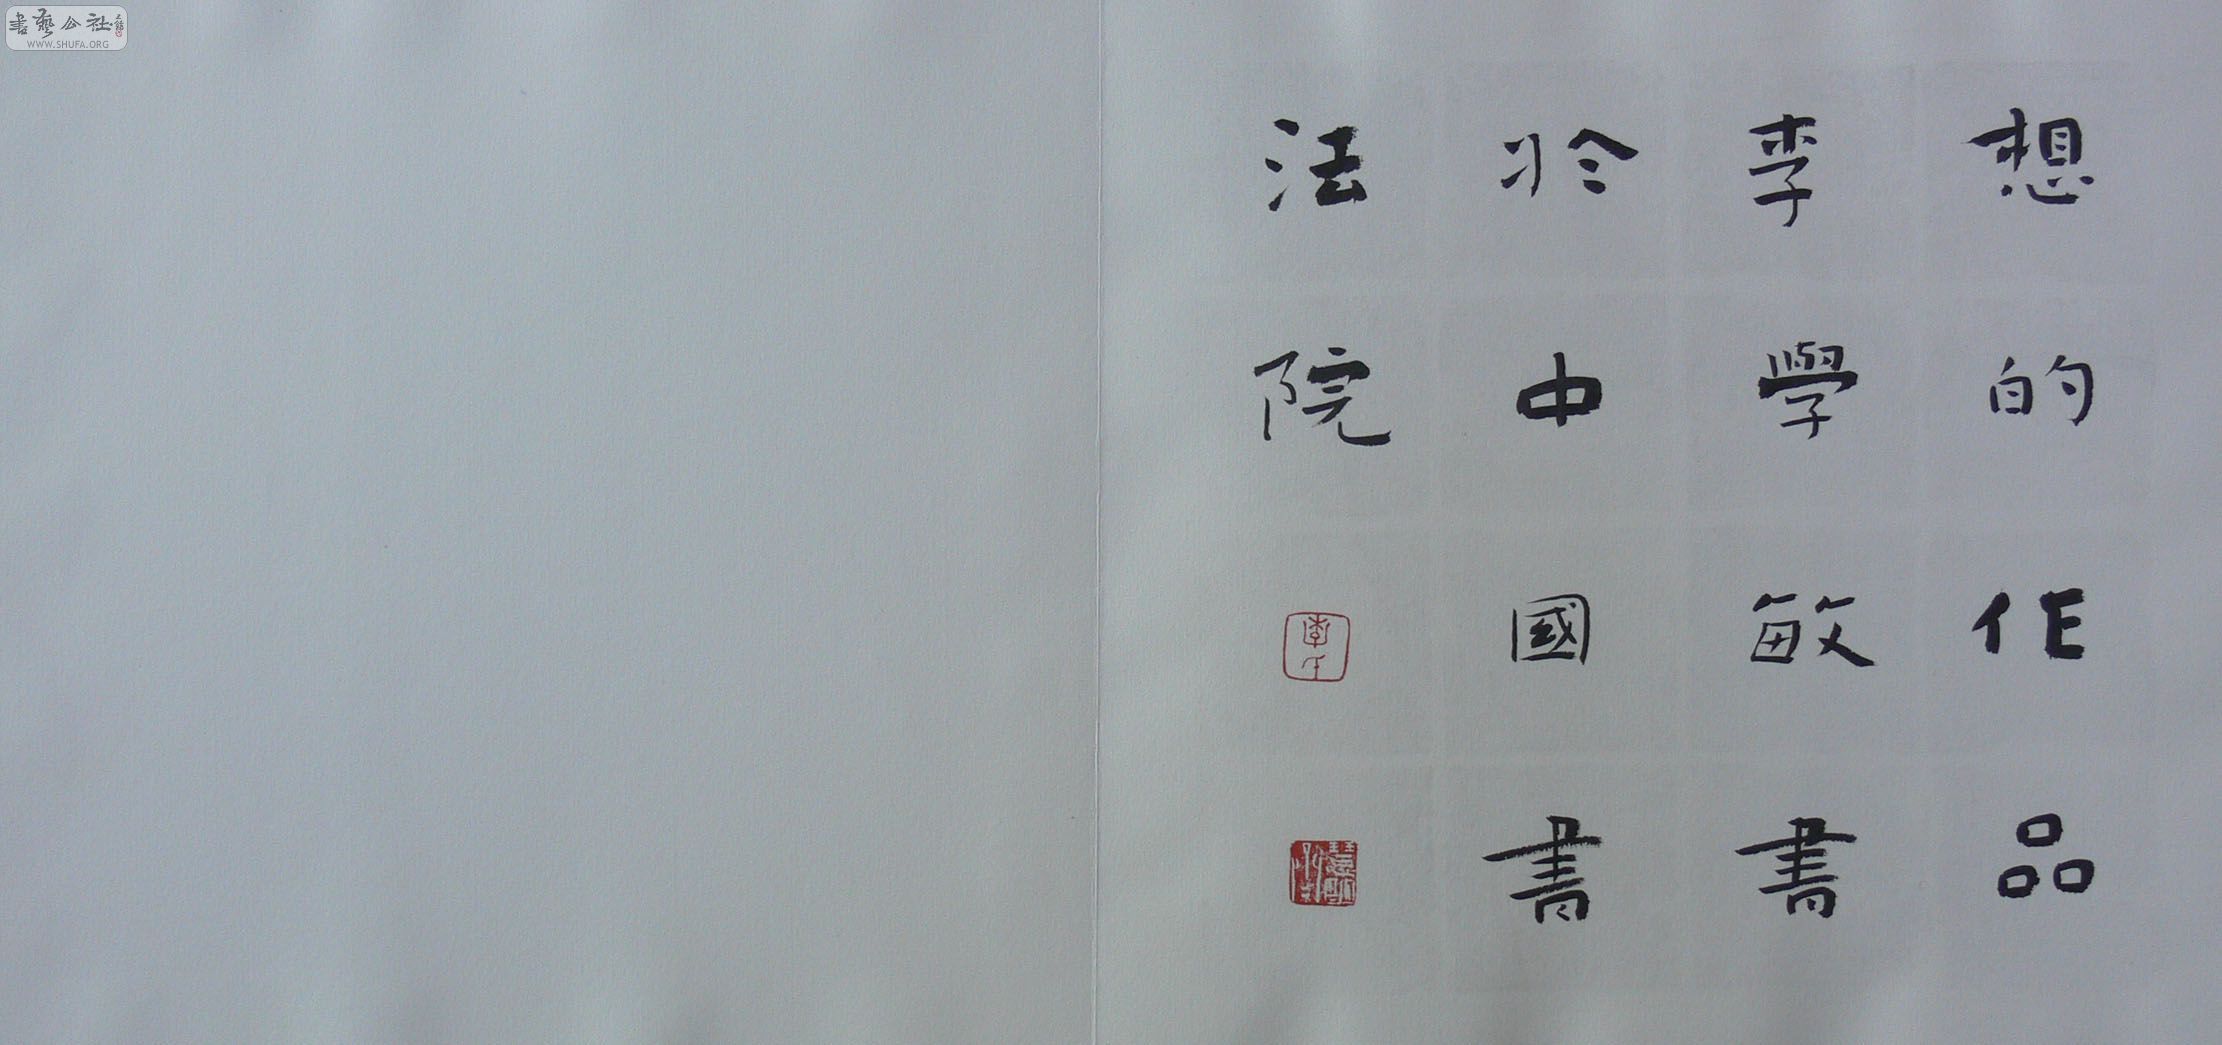 想的作品
李學敏書
於中國書
法院
書藝公社
WWW.SHUFA.ORG